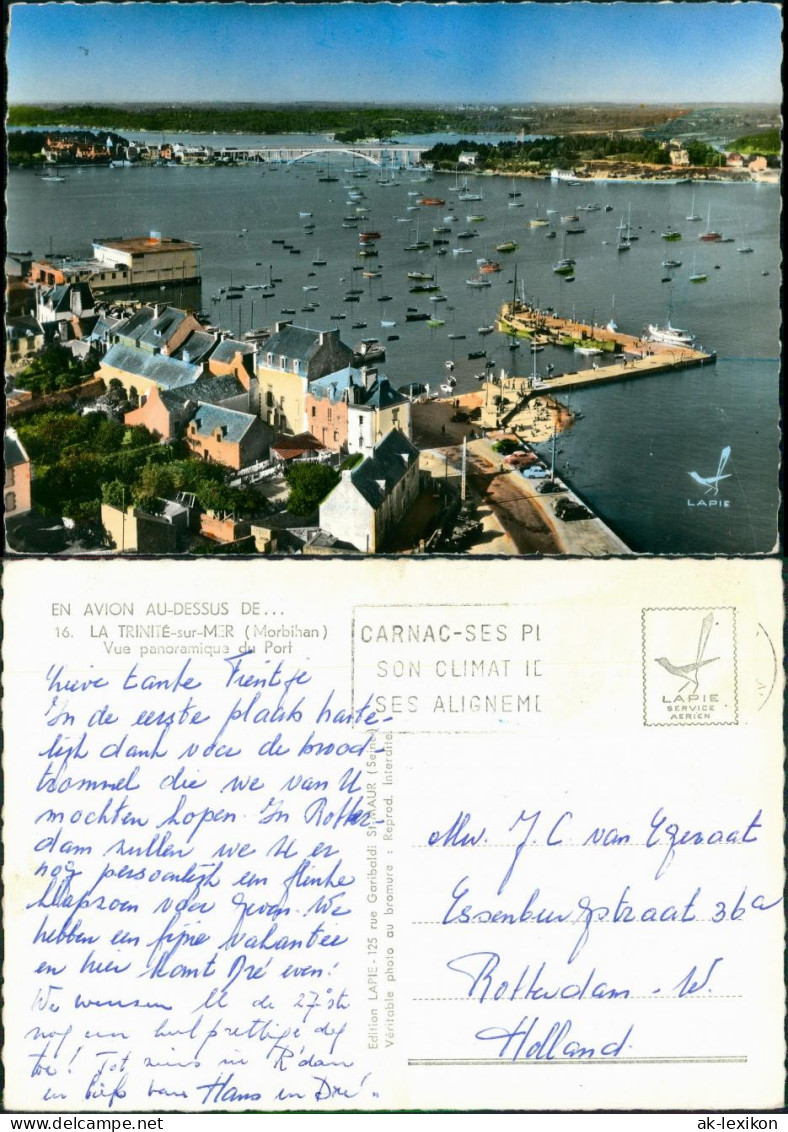 LAPIE
EN AVION AU-DESSUS DE...
16. LA TRINITÉ-sur-MER (Morbihan)
Vue panoramique du Port
CARNAC-SES PI
SON CLIMAT ID
SES ALIGNEME
LAPIE
SERVICE
AERIEN
Lieve tante Fientje
In de eerste plaats harte-
lijk dank voor de brood-
trommel die we van U
mochten kopen. In Rotter-
dam zullen we U er
nog persoonlijk een flinke
klapzoen voor geven. We
hebben een fijne vakantie
en hier komt Dré even!
We wensen U de 27ste
nog een heel prettige dag
toe! Tot ziens in R'dam
en liefs van Hans en Dré.
Edition LAPIE - 125 rue Garibaldi St MAUR (Seine)
Véritable photo au bromure : Reprod. Interdite.
Mw. J. C. van Ezeraat
Essenburgstraat 36a
Rotterdam - W.
Holland
ak-lexikon